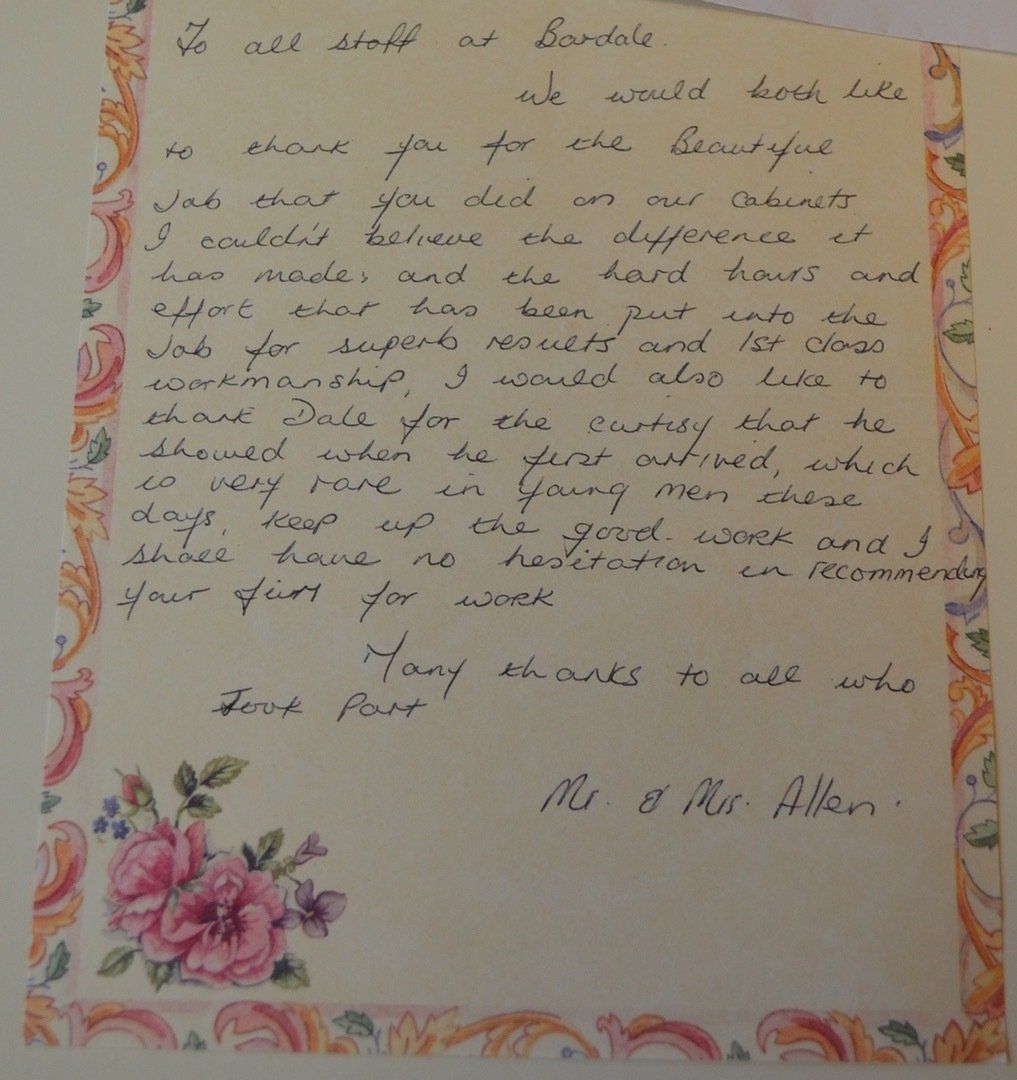 To all staff at Bardale.
We would both like
to thank you for the Beautiful
Job that you did on our cabinets
I couldn't believe the difference it
has made, and the hard hours and
effort that has been put into the
Job for superb results and 1st class
workmanship, I would also like to
thank Dale for the curtisy that he
showed when he first arrived, which
is very rare in young men these
days, keep up the good work and I
shall have no hesitation in recommending
your firm for work
Many thanks to all who
Took Part
Mr. & Mrs. Allen.